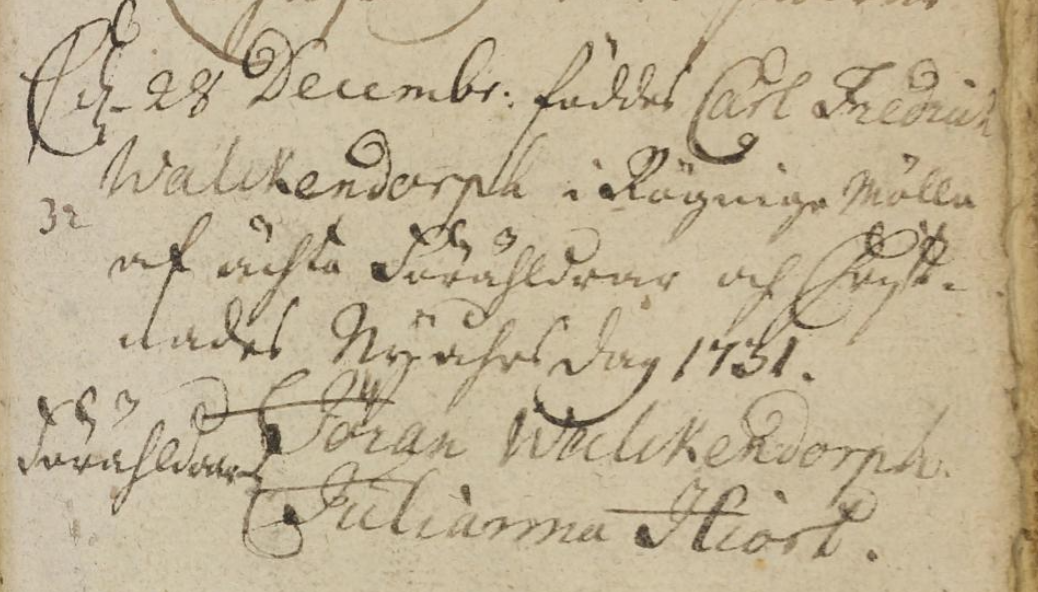 d. 28 Decembr. föddes Carl Fredrich
Walckendorph i Rögnige Mölla
32
af ächta Föräldrar och Christ-
nades Nyåhrs dag 1731.
Föräldrar Jöran Walckendorph.
Julianna Hiort.